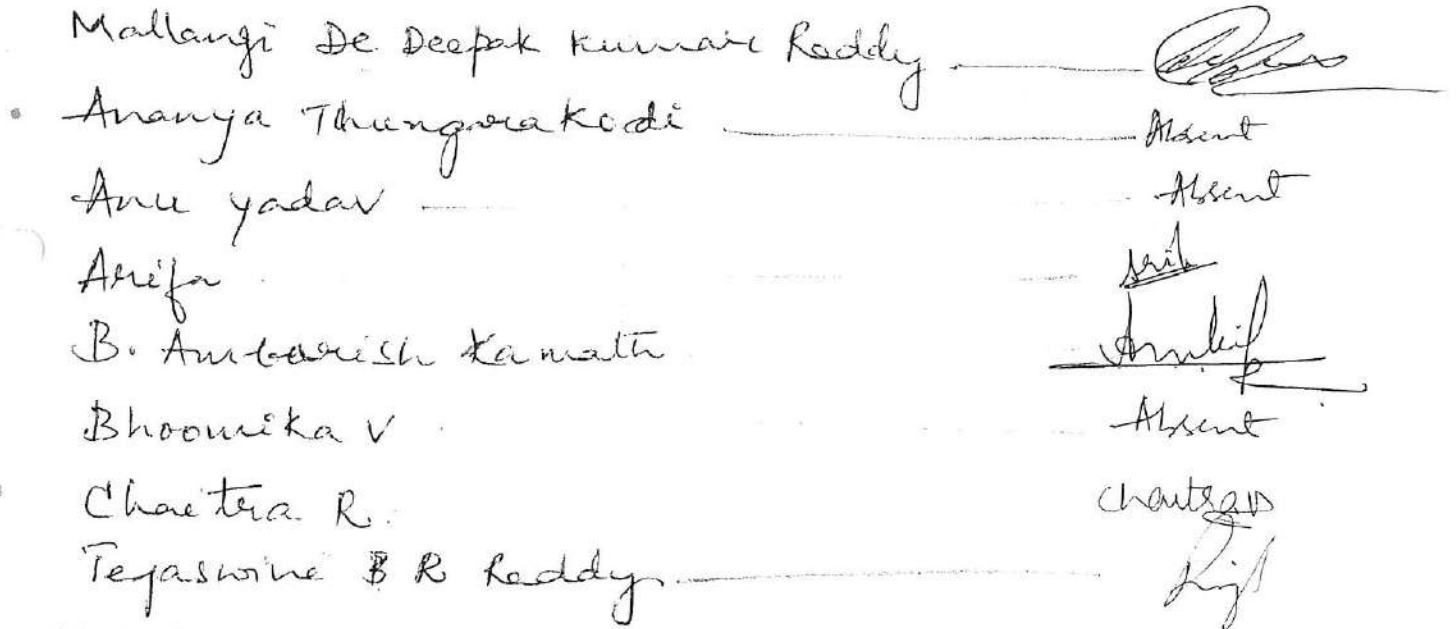 Mallangi De Deepak Kumar Reddy
Ananya Thungara Kodi Absent
Anu yadav Absent
Arifa
B. Ambarish Kamath
Bhoomika V Absent
Chaitra R. Chaitra
Tejaswine B R Reddy